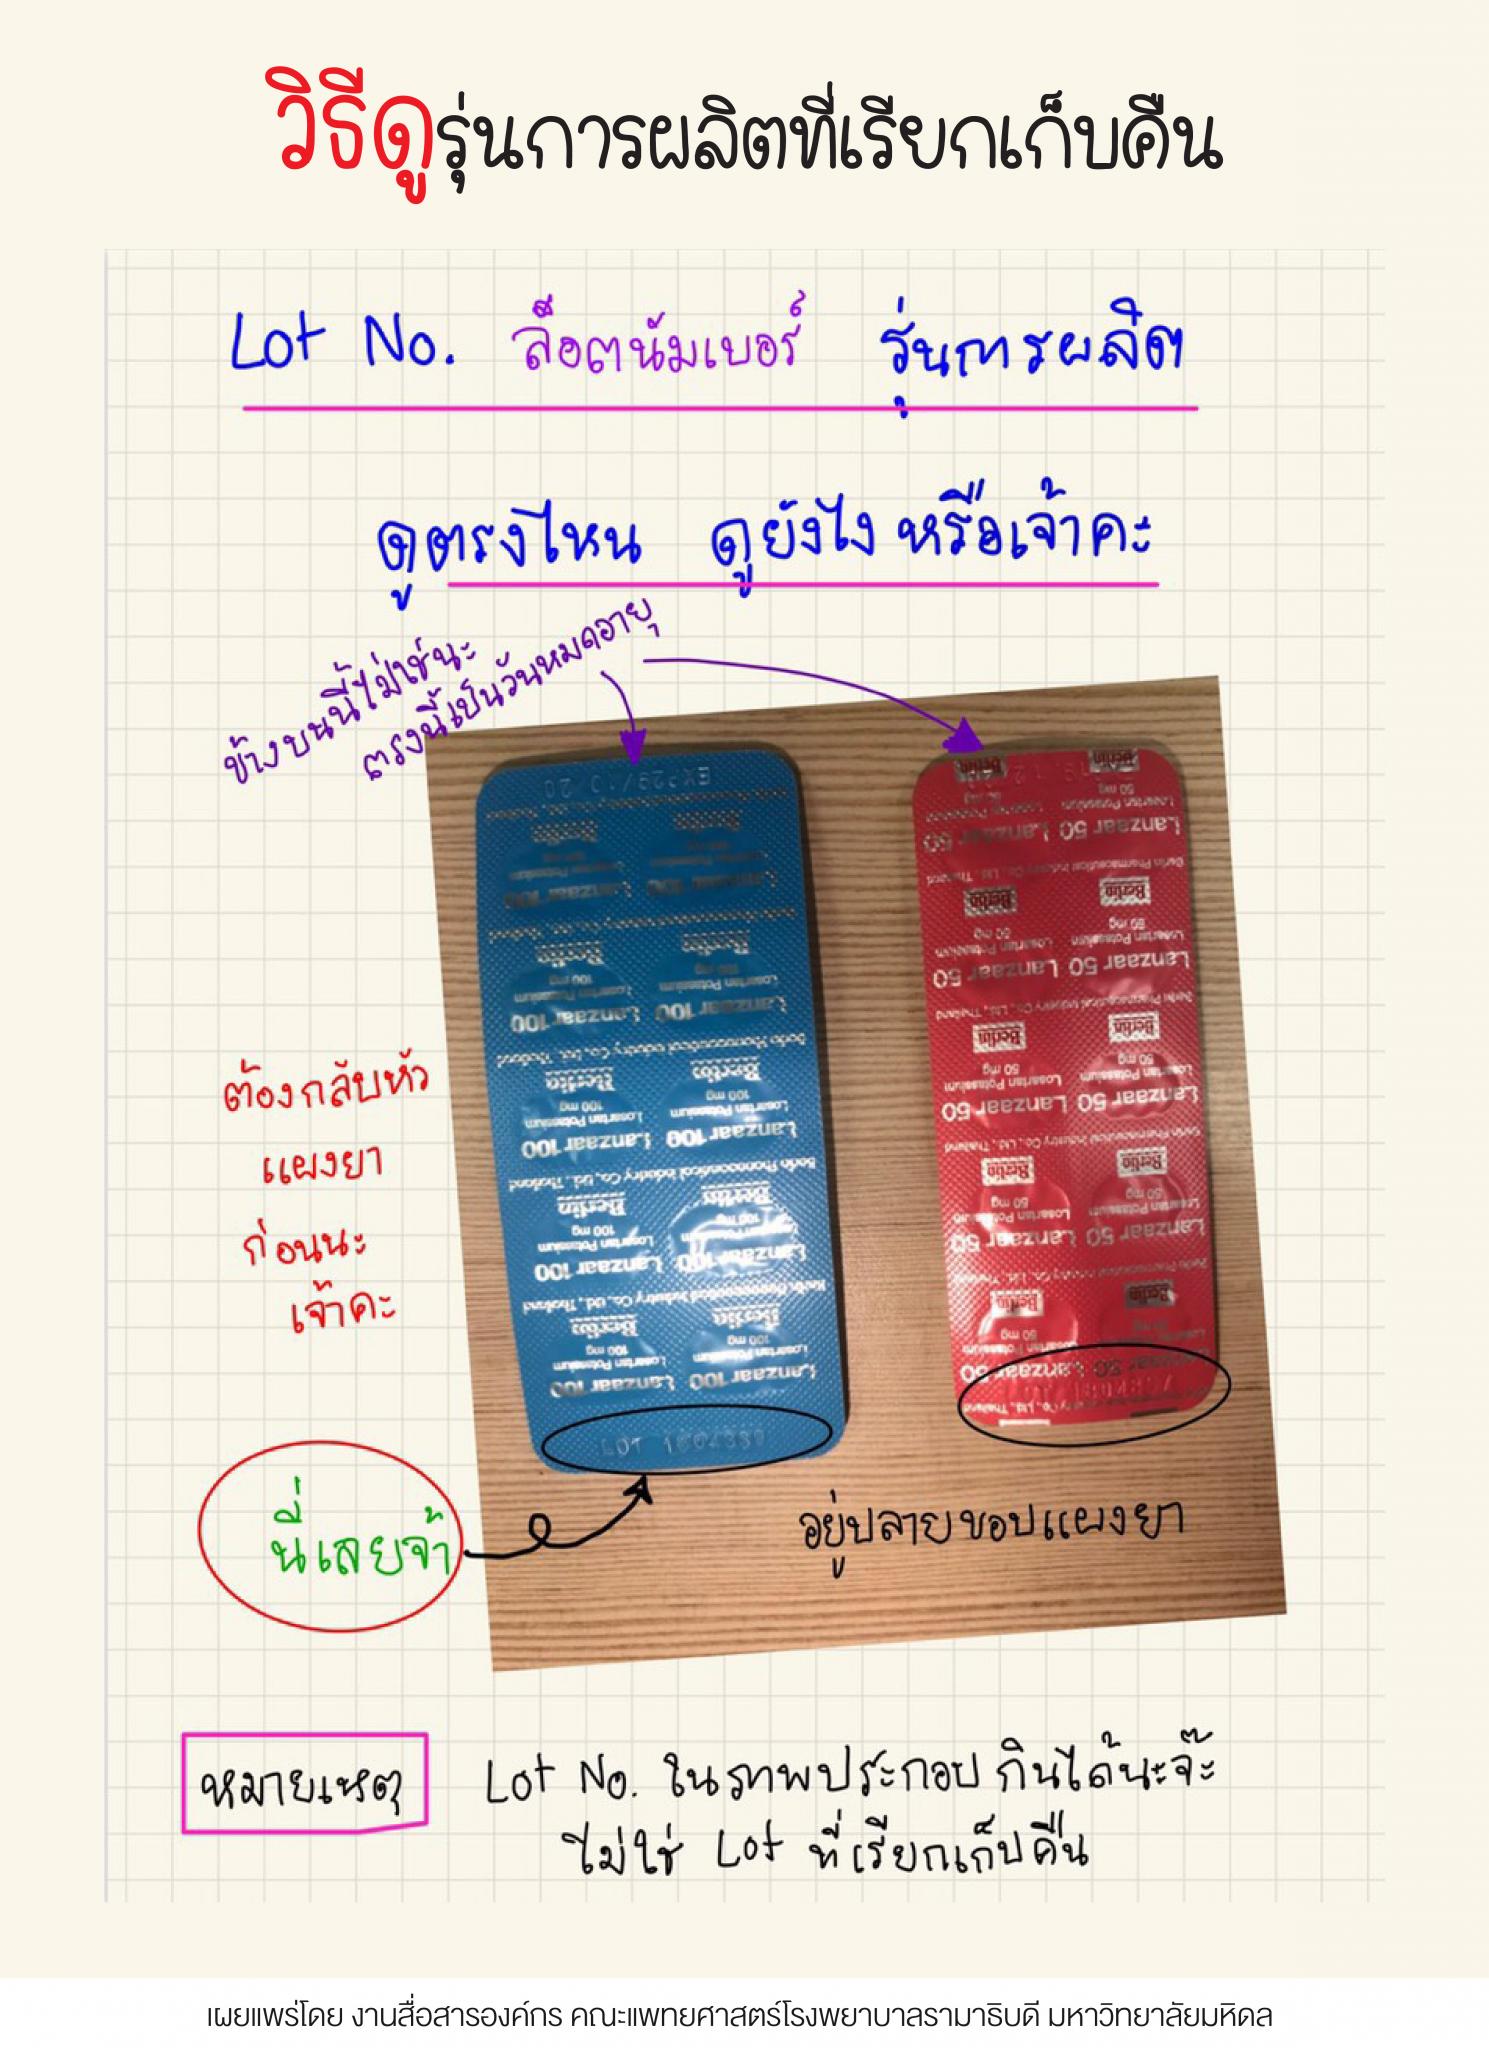 วิธีดูรุ่นการผลิตที่เรียกเก็บคืน
Lot No. ล็อตนัมเบอร์ รุ่นการผลิต
ดูตรงไหน ดูยังไง หรือเจ้าคะ
ข้างบนนี้ไม่ใช่นะ
ตรงนี้เป็นวันหมดอายุ
ต้องกลับหัว
แผงยา
ก่อนนะ
เจ้าคะ
Berlin Berlin
100 mg 100 mg
Losartan Potassium Losartan Potassium
Lanzaar 100 Lanzaar 100
Berlin Pharmaceutical Industry Co., Ltd., Thailand
LOT
Berlin Berlin
50 mg 50 mg
Losartan Potassium Losartan Potassium
Lanzaar 50 Lanzaar 50
Berlin Pharmaceutical Industry Co., Ltd., Thailand
LOT
นี่เลยจ้า
อยู่ปลายขอบแผงยา
หมายเหตุ
Lot No. ในภาพประกอบ กินได้นะจ๊ะ
ไม่ใช่ Lot ที่เรียกเก็บคืน
เผยแพร่โดย งานสื่อสารองค์กร คณะแพทยศาสตร์โรงพยาบาลรามาธิบดี มหาวิทยาลัยมหิดล